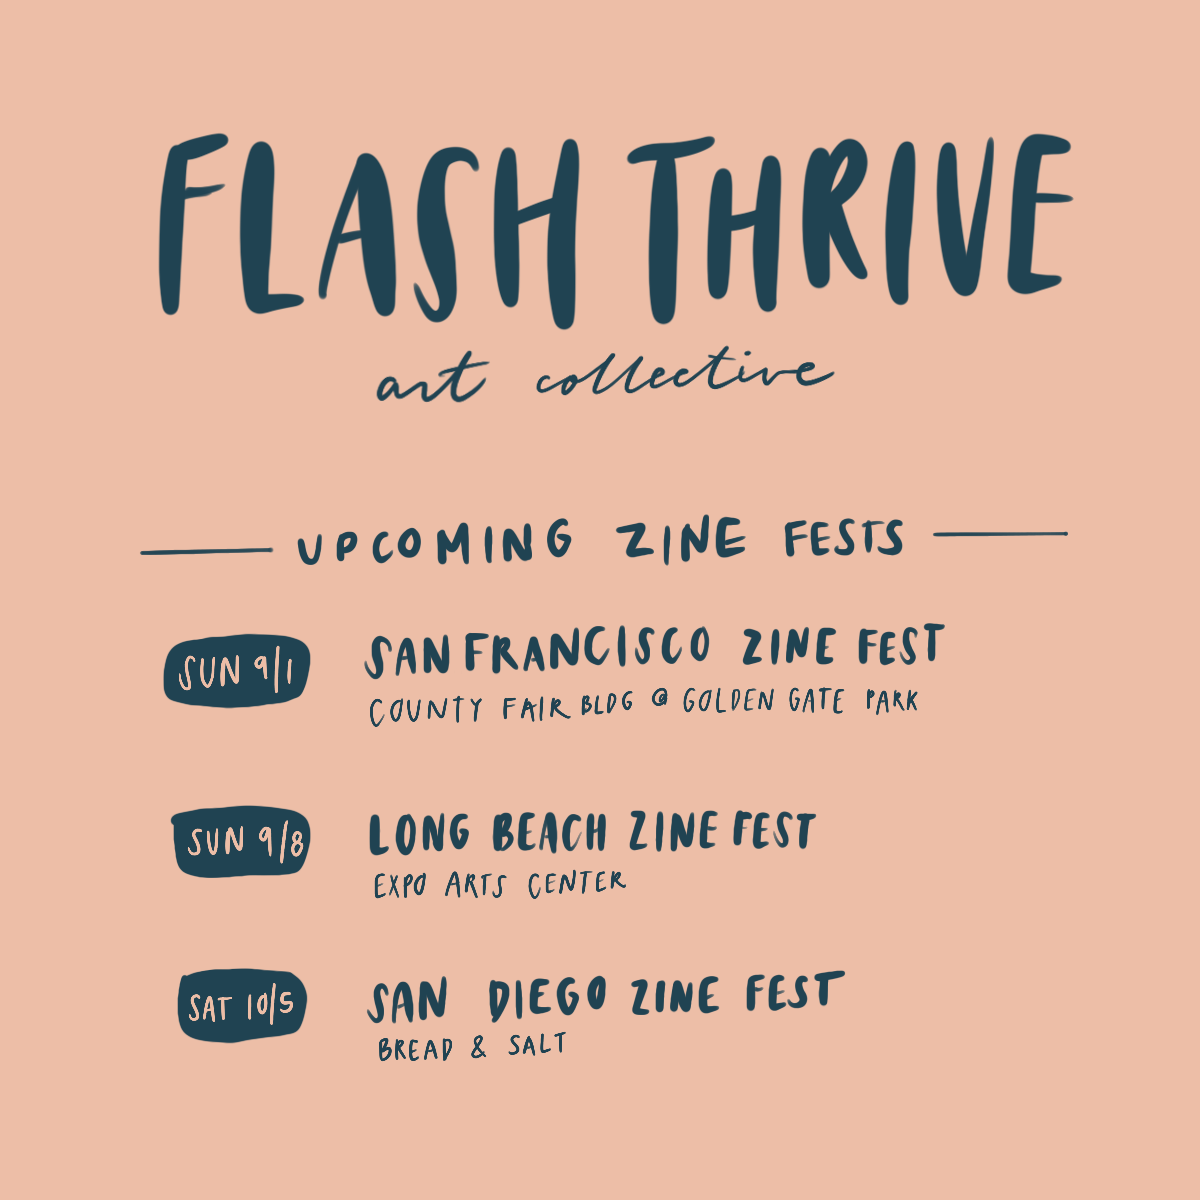 FLASH THRIVE
art collective
UPCOMING ZINE FESTS
SUN 9/1 SAN FRANCISCO ZINE FEST
COUNTY FAIR BLDG @ GOLDEN GATE PARK
SUN 9/8 LONG BEACH ZINE FEST
EXPO ARTS CENTER
SAT 10/5 SAN DIEGO ZINE FEST
BREAD & SALT